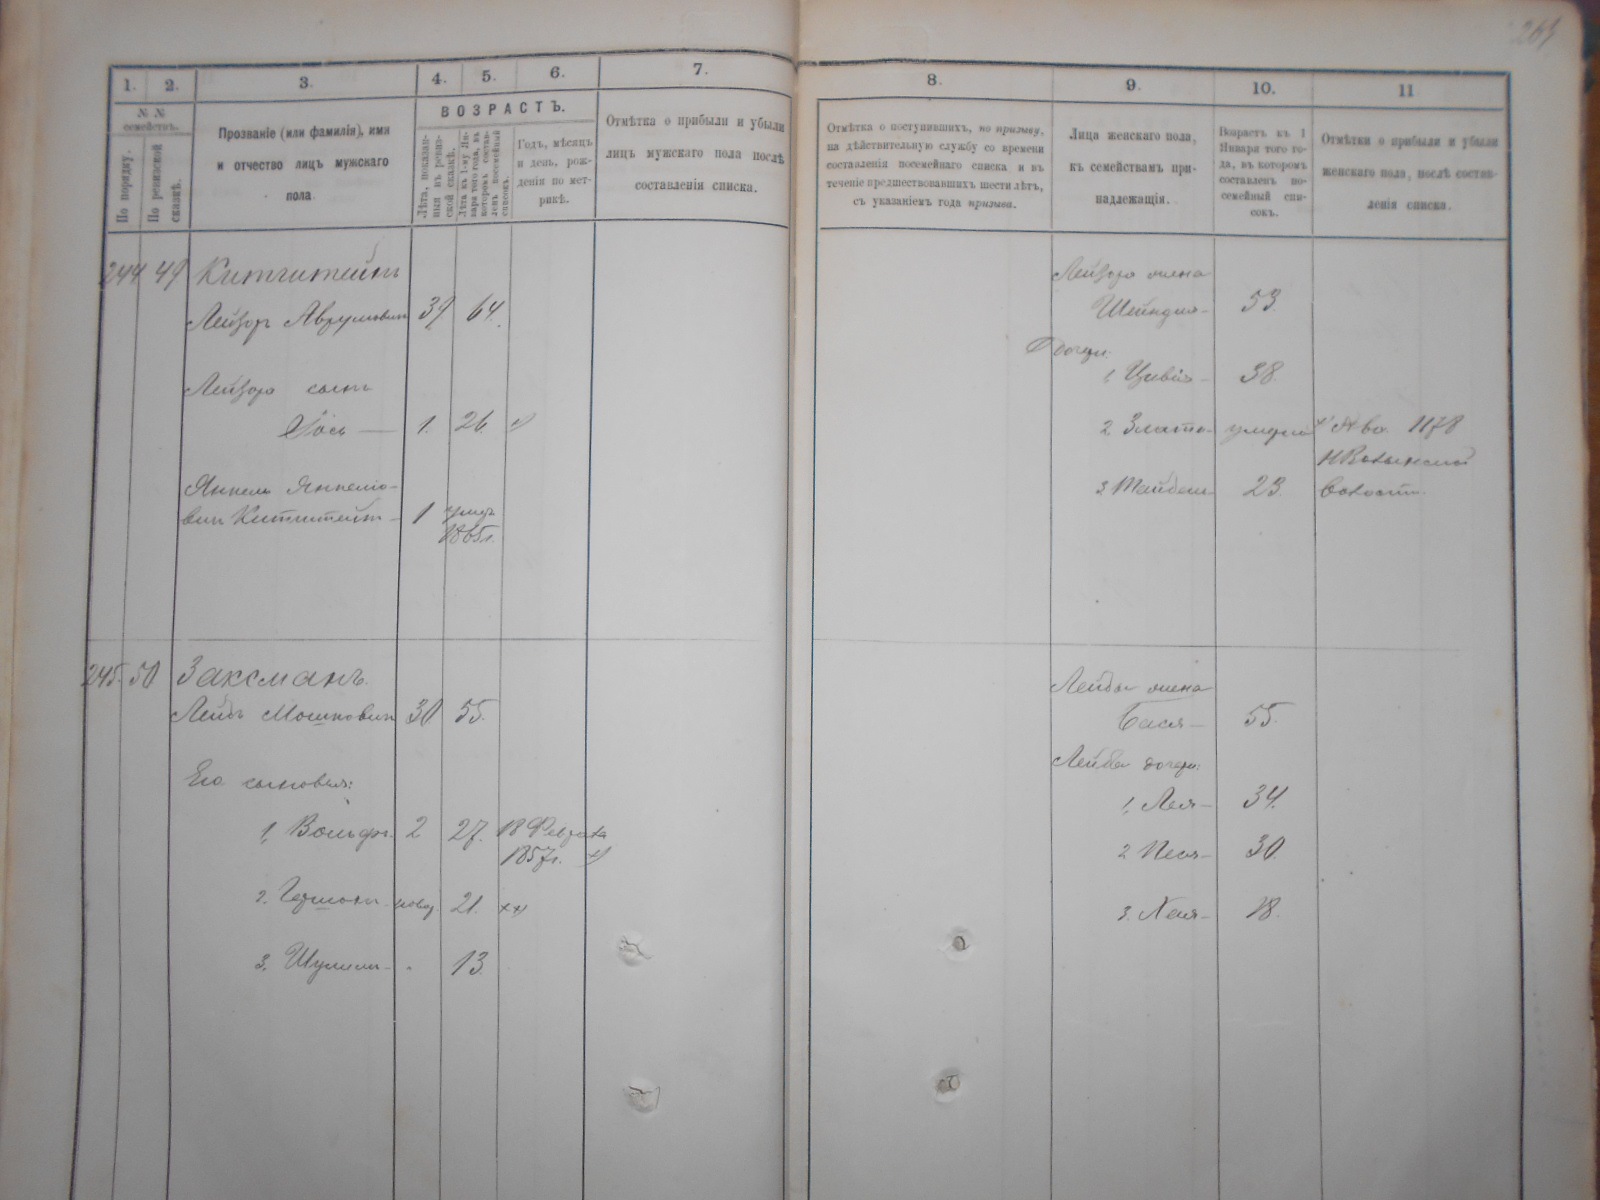 1. 2. 3. 4. 5. 6. 7.
№ №
семействъ.
По порядку.
По ревизской
сказкѣ.
Прозваніе (или фамилія), имя
и отчество лицъ мужскаго
пола.
ВОЗРАСТЪ.
Лѣта, показан-
ныя въ ревиз-
ской сказкѣ.
Лѣта къ 1-му Ян-
варя того года, въ
которомъ состав-
ленъ посемейный
списокъ.
Годъ, мѣсяцъ
и день, рож-
денія по мет-
рикѣ.
Отмѣтка о прибыли и убыли
лицъ мужскаго пола послѣ
составленія списка.
244 49
Лейзоръ Аврумовичъ 39 64.
Лейзора сынъ
1. 26.
Янкель Янкеліо-
вичъ 1 умеръ
1865 г.
245. 50 Заксманъ.
Лейбъ Мошковичъ 30 55.
Его сыновья:
1, Вольфъ. 2 27. 18 Февраля
1857 г.
2. Гершонъ. 21. ××
3. Шулимъ 13
8. 9. 10. 11
Отмѣтка о поступившихъ, по призыву,
на дѣйствительную службу со времени
составленія посемейнаго списка и въ
теченіе предшествовавшихъ шести лѣтъ,
съ указаніемъ года призыва.
Лица женскаго пола,
къ семействамъ при-
надлежащія.
Возрастъ къ 1
Января того го-
да, въ которомъ
составленъ по-
семейный спи-
сокъ.
Отмѣтки о прибыли и убыли
женскаго пола, послѣ состав-
ленія списка.
Лейзора жена
Шейндля 53.
дочери:
1, Цивія 38
2. Злата умерла 1178
3. 23. волости.
Лейбы жена
Бася 55.
Лейбы дочери:
1, Лея 34.
2 Песя 30.
3. Хая 18.